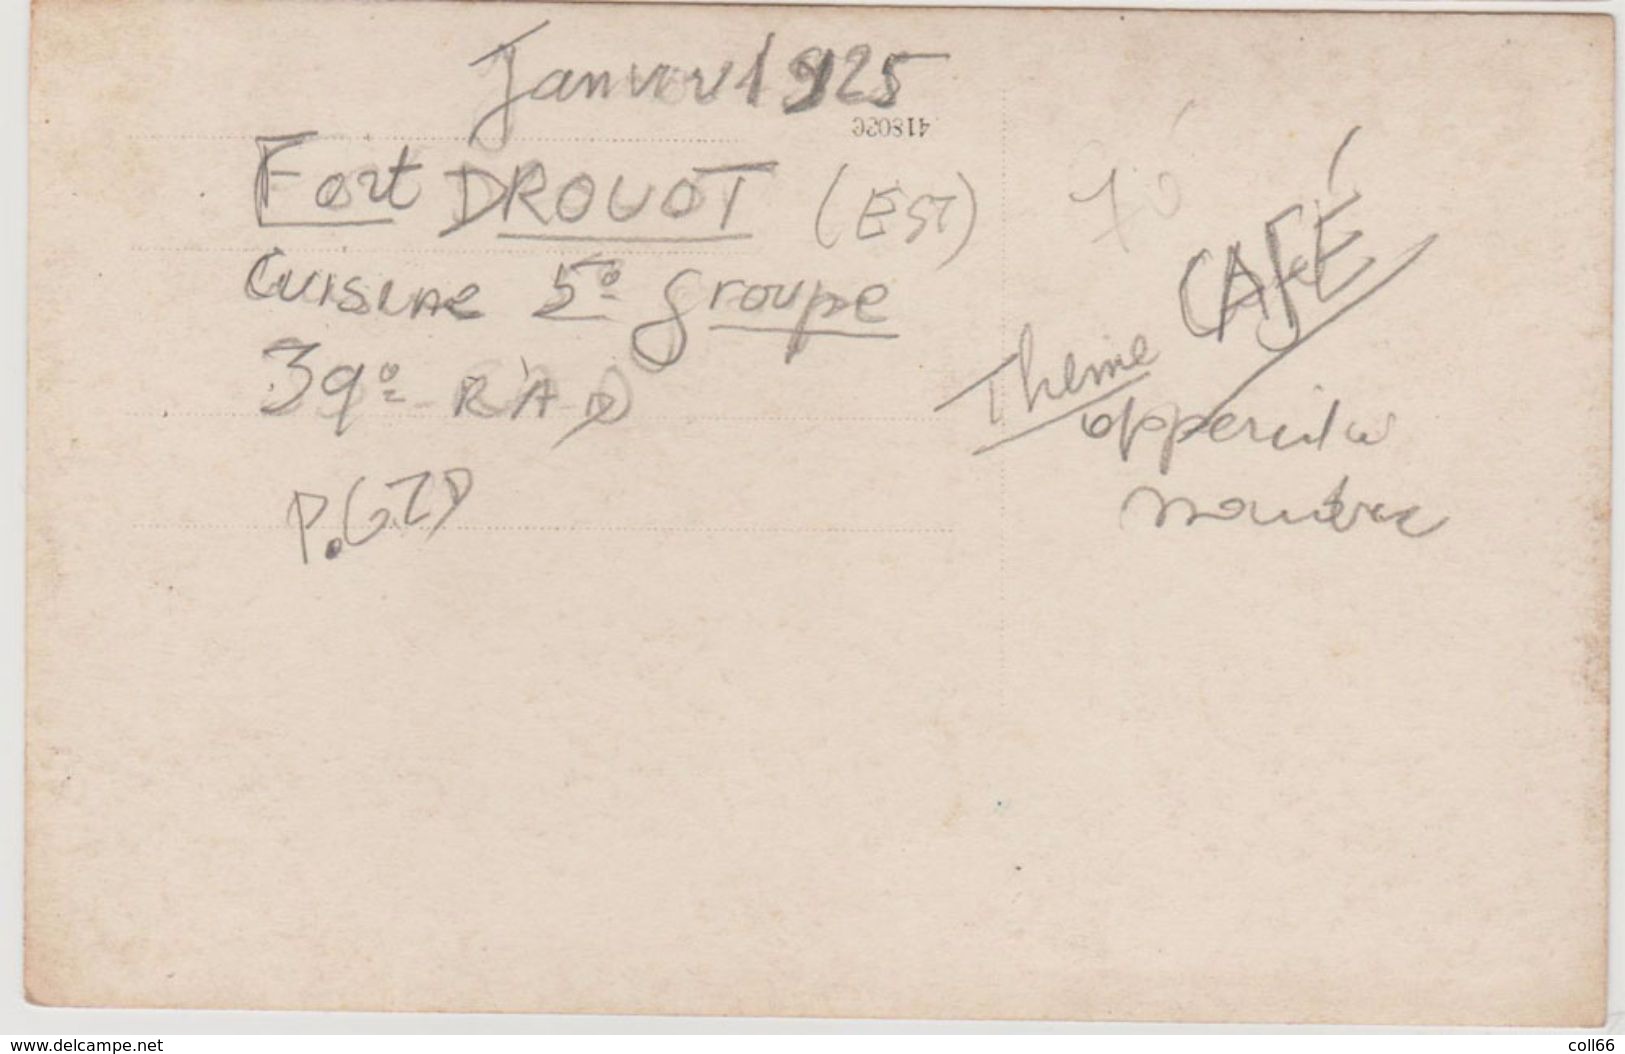 Janvier 1925
418020
Fort DROUOT (EST)
Cuisine 5e groupe
39e R.A.D
P.GZD
70
Thème CAFÉ
www.delcampe.net
coll66